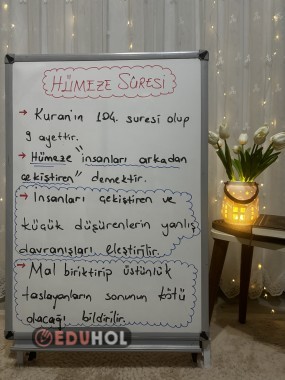 HÜMEZE SÛRESİ
→ Kuran'ın 104. suresi olup
9 ayettir.
→ Hümeze "insanları arkadan
çekiştiren" demektir.
→ İnsanları çekiştiren ve
küçük düşürenlerin yanlış
davranışları eleştirilir.
→ Mal biriktirip üstünlük
taslayanların sonunun kötü
olacağı bildirilir.
EDUHOL